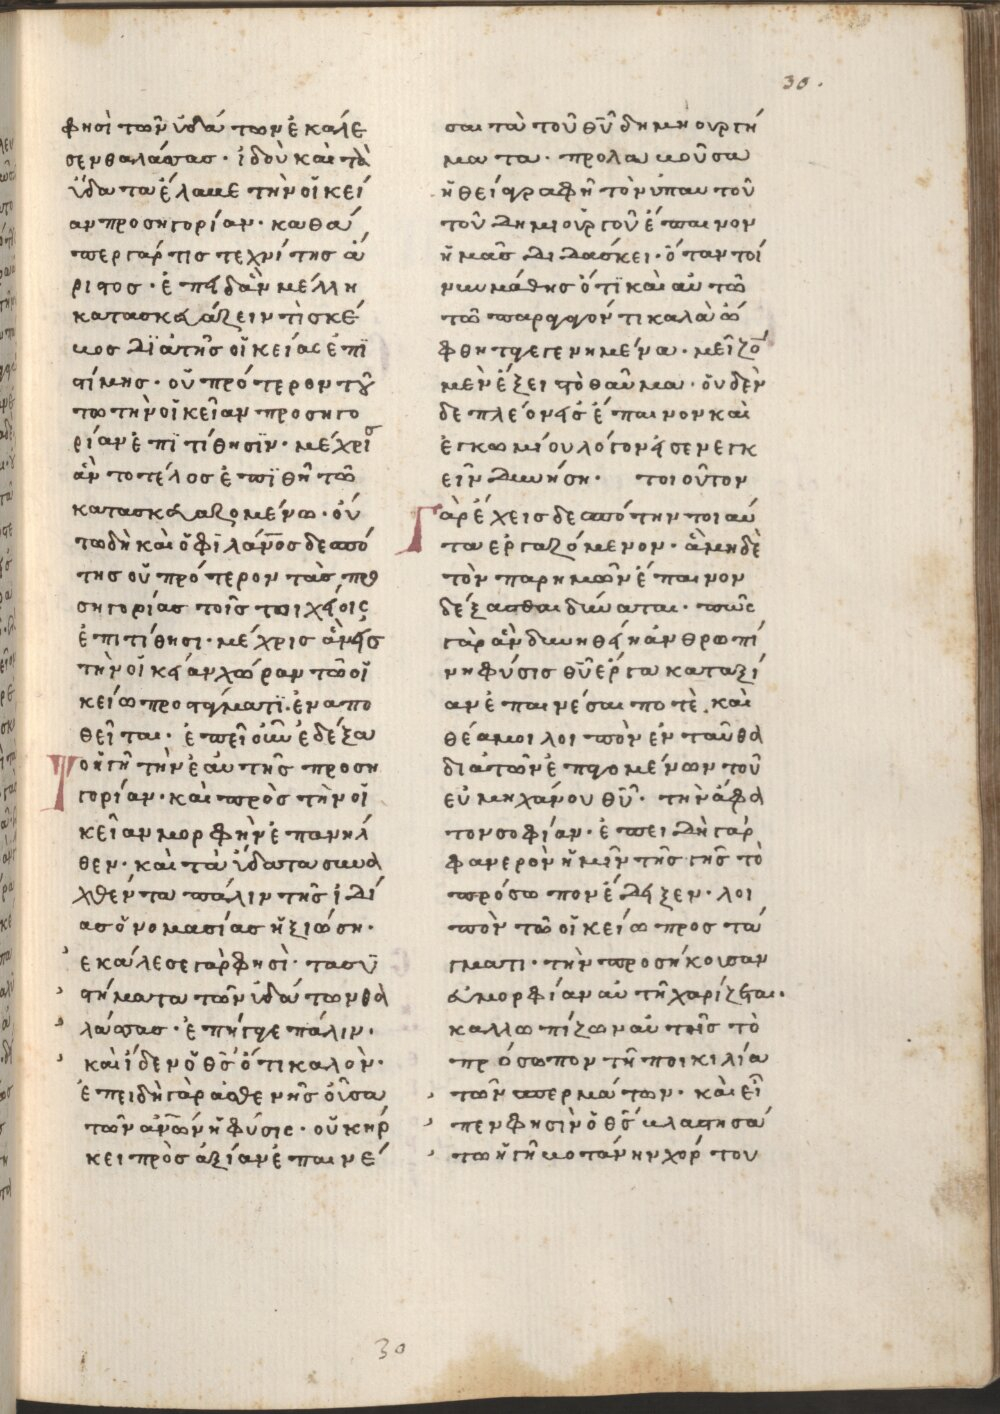 30.
φησὶ τῶν ὑδάτων ἐκάλε
σεν θαλάσσας· ἰδοὺ καὶ τὰ
ὕδατα ἔλαβε τὴν οἰκεί
αν προσηγορίαν· καθά
περ γάρ τις τεχνίτης ἄ
ριστος· ἐπειδὰν μέλλη
κατασκευάζειν τὶ σκέ
υος διὰ τῆς οἰκείας ἐπι
στίμης· οὐ πρότερον τού
τω τὴν οἰκεῖαν προσηγο
ρίαν ἐπιτίθησιν· μέχρις
ἂν το τέλος ἐπιθῆ τῶ
κατασκευαζομένω· οὕ
τω δὴ καὶ ὁ φιλάνος δεσπό
της οὐ πρότερον τὰς προ
σηγορίας τοῖς στοιχείοις
ἐπιτίθησι· μέχρις ἂν εἰς
τὴν οἰκείαν χώραν τῶ οἰ
κείω προστάγματι ἐναπο
θεῖται· ἐπεὶ οὖν ἐδέξα
Το ἡ γῆ τὴν ἑαυτῆς προση
γορίαν· καὶ πρὸς τὴν οἰ
κεῖαν μορφὴν ἐπανῆλ
θεν· καὶ τὰ ὕδατα συνα
χθέντα πάλιν τῆς ἰδί
ας ὀνομασίας ἠξιώθη·
εκάλεσε γὰρ φησὶ· τα συ
στήματα τῶν ὑδάτων θα
λάσσας· ἐπήγαγε πάλιν·
καὶ ἴδεν ὁ θς ὅτι καλὸν·
ἐπειδὴ γὰρ ἀσθενὴς οὖσα
τῶν ἀνων ἡ φύσις· οὐκ ἤρ
κει πρὸς ἀξίαν ἐπαινέ
σαι τὰ τοῦ θυ δημιουργή
ματα· προλαβοῦσα
ἡ θεία γραφὴ τὸν ὑπ αυτοῦ
τοῦ δημιουργοῦ ἔπαινον
ἡμᾶς διδάσκει· ὅταν τοί
νυν μάθης ὅτι καὶ αὐτῶ
τῶ παραγαγόντι καλὰ ὤ
φθη τὰ γεγενημένα· μεῖζο
μὲν ἕξει τὸ θαῦμα· οὐδὲν
δε πλέον εἰς ἔπαινον καὶ
ἐγκωμίου λόγον εἰσενεγκ
εῖν δυνήση· τοιοῦτον
Γὰρ ἔχεις δεσπότην τοιαῦ
τα εργαζόμενον· ἃ μηδὲ
τὸν παρ ημῶν ἔπαινον
δέξασθαι δύναται· πῶς
γὰρ ἂν δυνηθείη ἀνθρωπί
νη φύσις θυ έργα καταξί
αν ἐπαινέσαι ποτὲ· καὶ
θέα μοι λοιπὸν ἐνταῦθα
διὰ τῶν ἑπομένων τοῦ
εὐμηχάνου θυ· τὴν ἄφα
τον σοφίαν· ἐπειδὴ γάρ
φανερὸν ἡμῖν τῆς γῆς τὸ
πρόσωπον ἔδειξεν· λοι
πὸν τῶ οἰκείω προστά
γματι· τὴν προσήκουσαν
εὐμορφίαν αὐτῆ χαρίζεται·
καλλωπίζων αὐτῆς τὸ
πρόσωπον τῆ ποικιλία
τῶν σπερμάτων· καὶ εἶ
πεν φησὶν ὁ θς βλαστησά
τω ἡ γῆ βοτάνην χόρτου
30